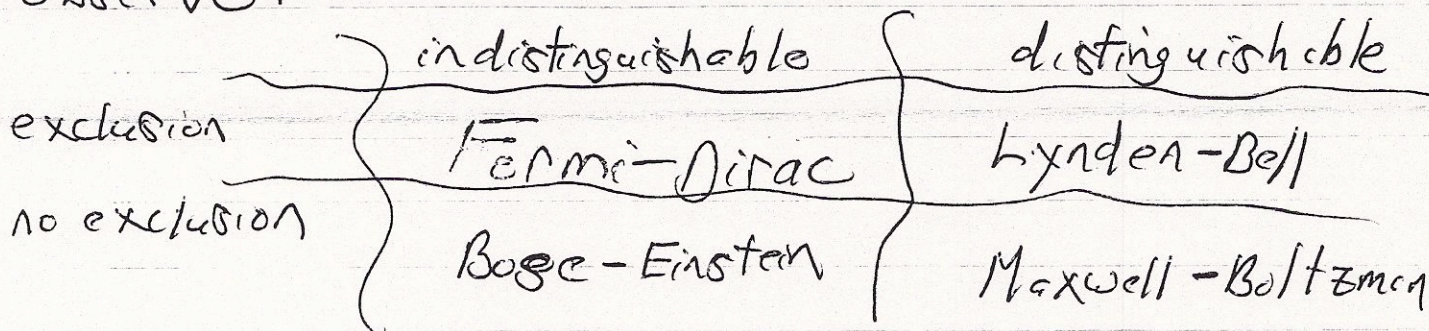 indistinguishable distinguishable
exclusion Fermi-Dirac Lynden-Bell
no exclusion Bose-Einstein Maxwell-Boltzman